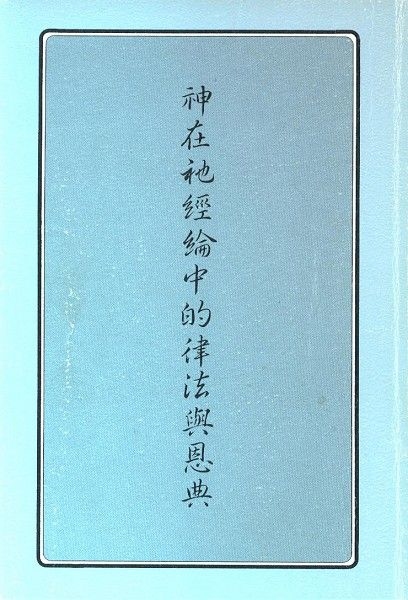 神在祂經綸中的律法與恩典